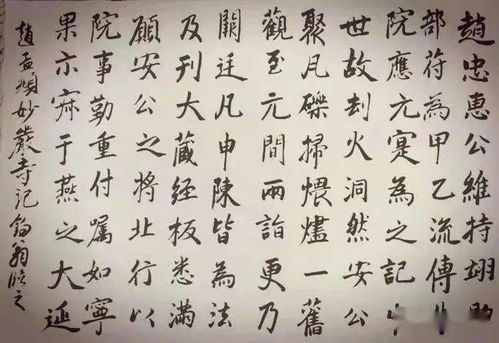 趙忠惠公維持翊助
部苻為甲乙流傳
院應元寔為之記中
世故刦火洞然安公
聚凡礫掃煨燼一舊
觀至元間兩詣更乃
闕廷凡申陳皆為法
及刊大藏經板悉滿
願安公之將北行以
院事勤重付囑如寧
果示寂于燕之大延
趙孟頫妙嚴寺記翁臨之